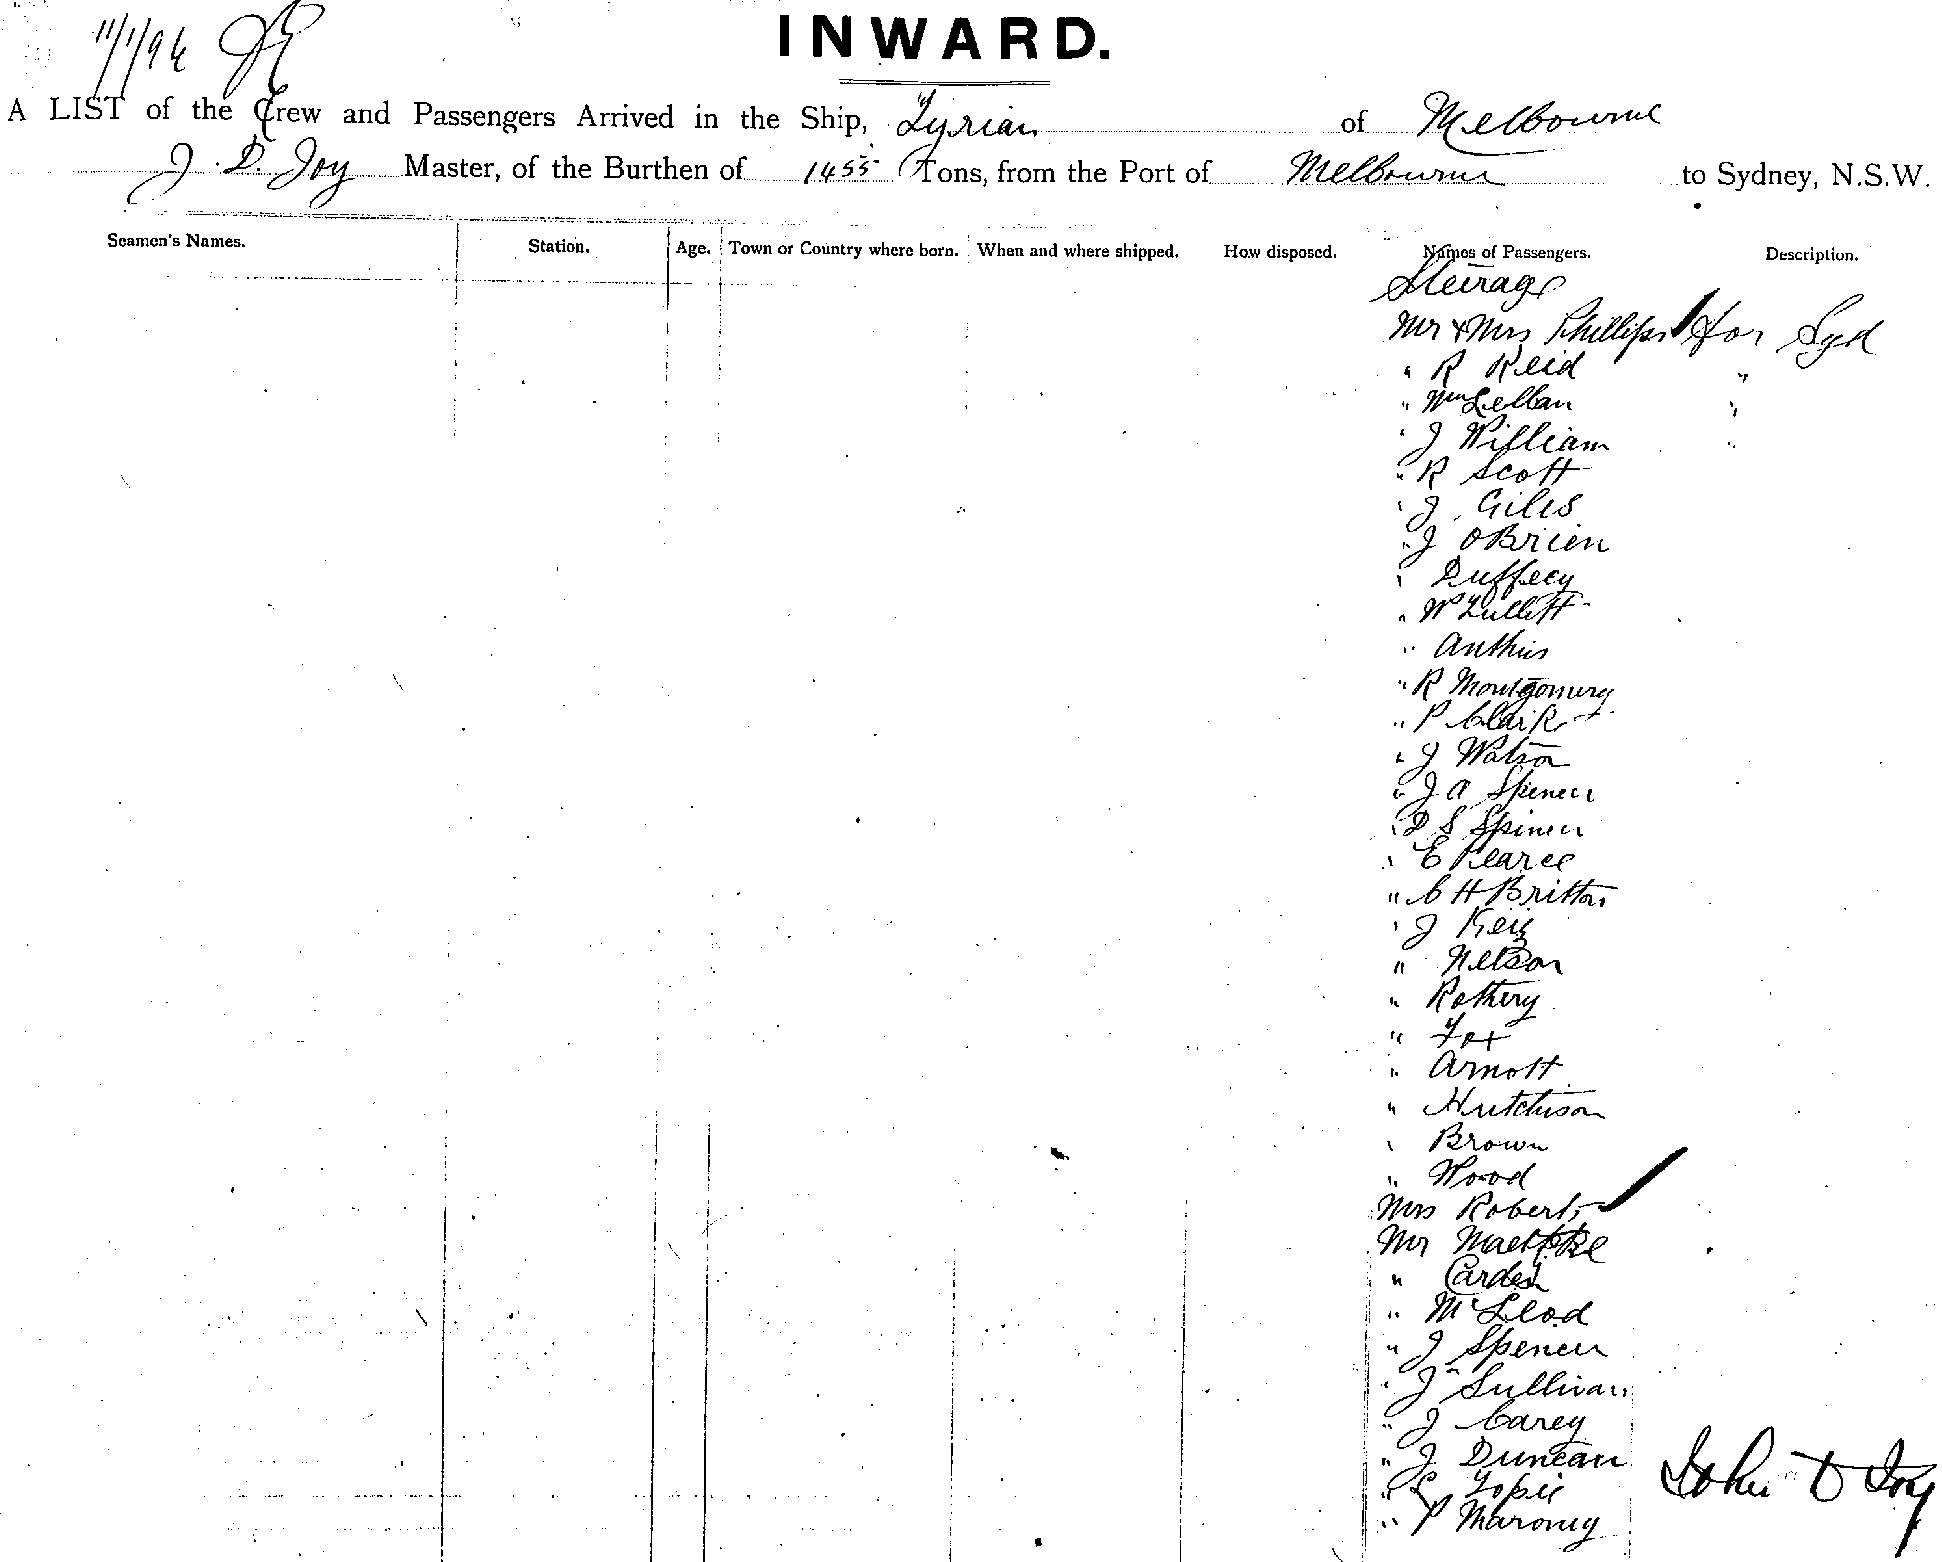 11/1/96
INWARD.
A LIST of the Crew and Passengers Arrived in the Ship, Tyrian of Melbourne
J. D. Joy Master, of the Burthen of 1455 Tons, from the Port of Melbourne to Sydney, N.S.W.
Seamen's Names. Station. Age. Town or Country where born. When and where shipped. How disposed. Names of Passengers. Description.
Steerage
Mr & Mrs Phillips for Syd
" R Reid "
" "
" J William "
" R Scott
" J Giles
" J OBrien
" Duffecy
" W
" Anthis
" R Montgomery
" P Clark
" J Watson
" J A Spencer
" D S Spencer
" E Pearce
" C H Britton
" J
" Nelson
" Rothery
" Fox
" Arnott
" Hutchison
" Brown
" Wood
Mrs Roberts
Mr
" Carden
" McLeod
" J Spencer
" J Sullivan
" J Carey
" J Duncan
"
" P Maroney
John D Joy